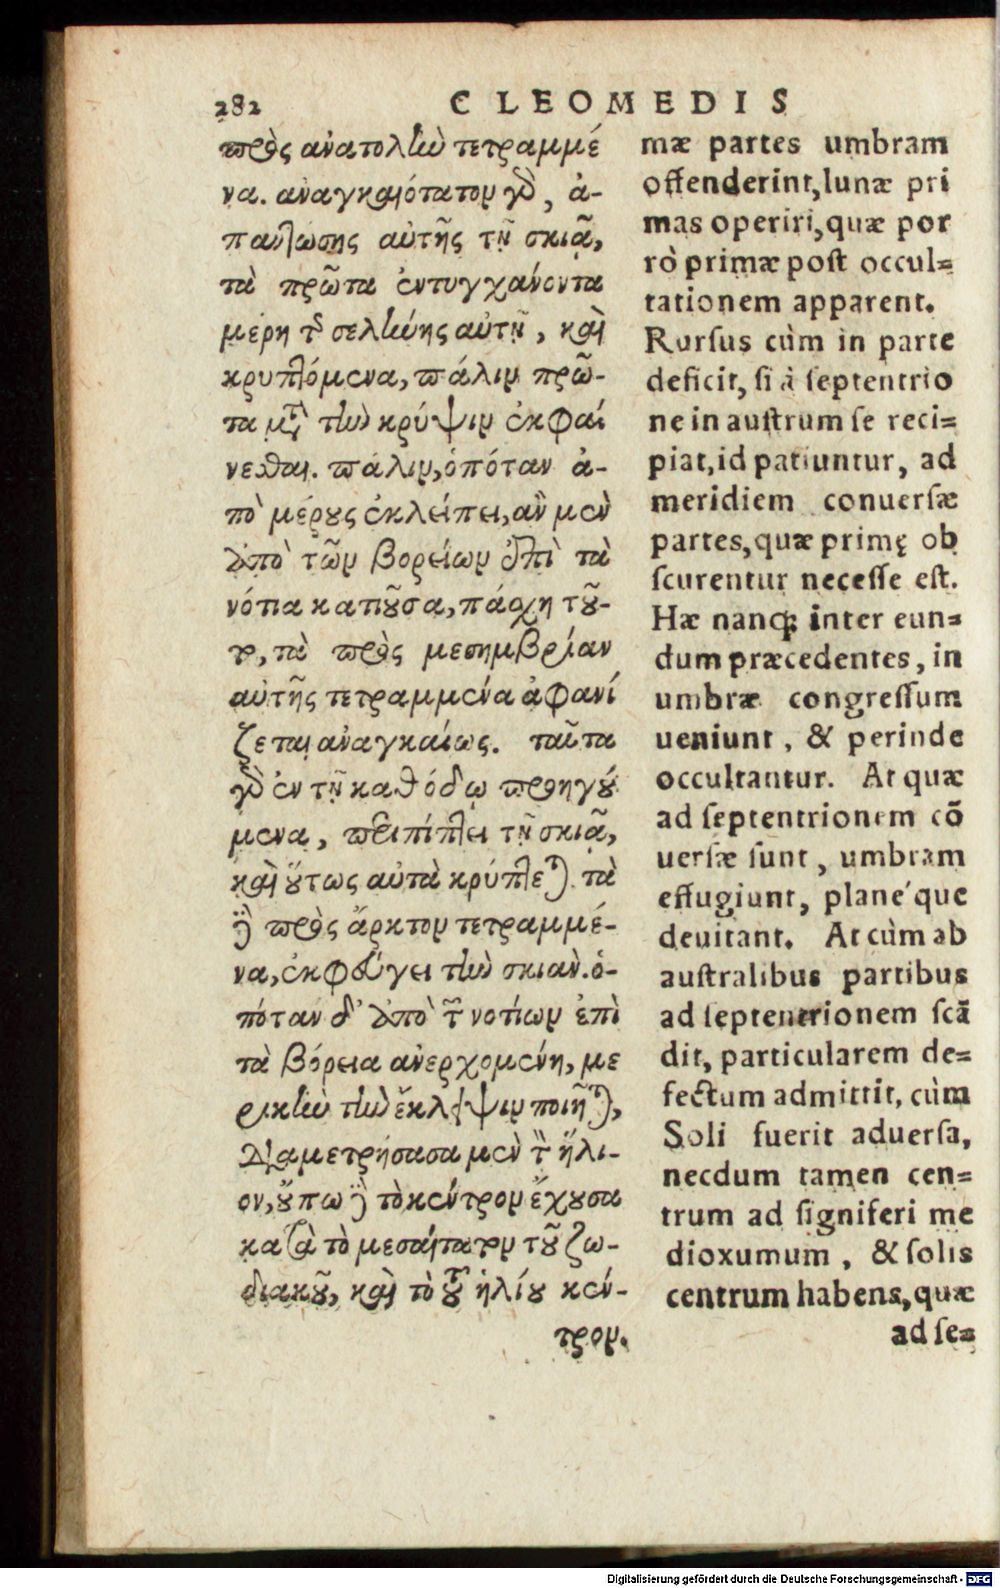 282 CLEOMEDIS
πρὸς ἀνατολὴν τετραμμέ
να. ἀναγκαιότατον γὸ, ἀ-
παντώσης αὐτῆς τῇ σκιᾷ,
τὰ πρῶτα ἐντυγχάνοντα
μέρη τ͂ σελήνης αὐτῇ, καὶ
κρυπτόμενα, πάλιν πρῶ-
τα μτ̀ τὴν κρύψιν ἐκφαί
νεσθαι. πάλιν, ὁπόταν ἀ-
πὸ μέρους ἐκλείπει, ἂν μὲν
ἀπὸ τῶν βορείων ἐπὶ τὰ
νότια κατιοῦσα, πάσχῃ τοῦ-
το, τὰ πρὸς μεσημβρίαν
αὐτῆς τετραμμένα ἀφανί
ζεται ἀναγκαίως. ταῦτα
γὸ ἐν τῇ καθόδῳ προηγού
μενα, περιπίπτει τῇ σκιᾷ,
καὶ οὕτως αὐτὰ κρύπτεται. τὰ
δὲ πρὸς ἄρκτον τετραμμέ-
να, ἐκφεύγει τὴν σκιάν. ὁ-
πόταν δ' ἀπὸ τ͂ νοτίων ἐπὶ
τὰ βόρεια ἀνερχομένη, με
ρικὴν τὴν ἔκλειψιν ποιῆται,
διαμετρήσασα μὲν τὸν ἥλι-
ον, οὔπω δὲ τὸ κέντρον ἔχουσα
κατὰ τὸ μεσαίτατον τοῦ ζω-
διακοῦ, καὶ τὸ τοῦ ἡλίου κέν-
τρον.
mæ partes umbram
offenderint, lunæ pri
mas operiri, quæ por
rò primæ post occul=
tationem apparent.
Rursus cùm in parte
deficit, si à septentrio
ne in austrum se reci=
piat, id patiuntur, ad
meridiem conuersæ
partes, quæ primę ob
scurentur necesse est.
Hæ nanq; inter eun=
dum præcedentes, in
umbræ congressum
ueniunt, & perinde
occultantur. At quæ
ad septentrionem cõ
uersæ sunt, umbram
effugiunt, plane´que
deuitant. At cùm ab
australibus partibus
ad septentrionem scã
dit, particularem de=
fectum admittit, cùm
Soli fuerit aduersa,
necdum tamen cen=
trum ad signiferi me
dioxumum, & solis
centrum habens, quæ
ad se=
Digitalisierung gefördert durch die Deutsche Forschungsgemeinschaft - DFG